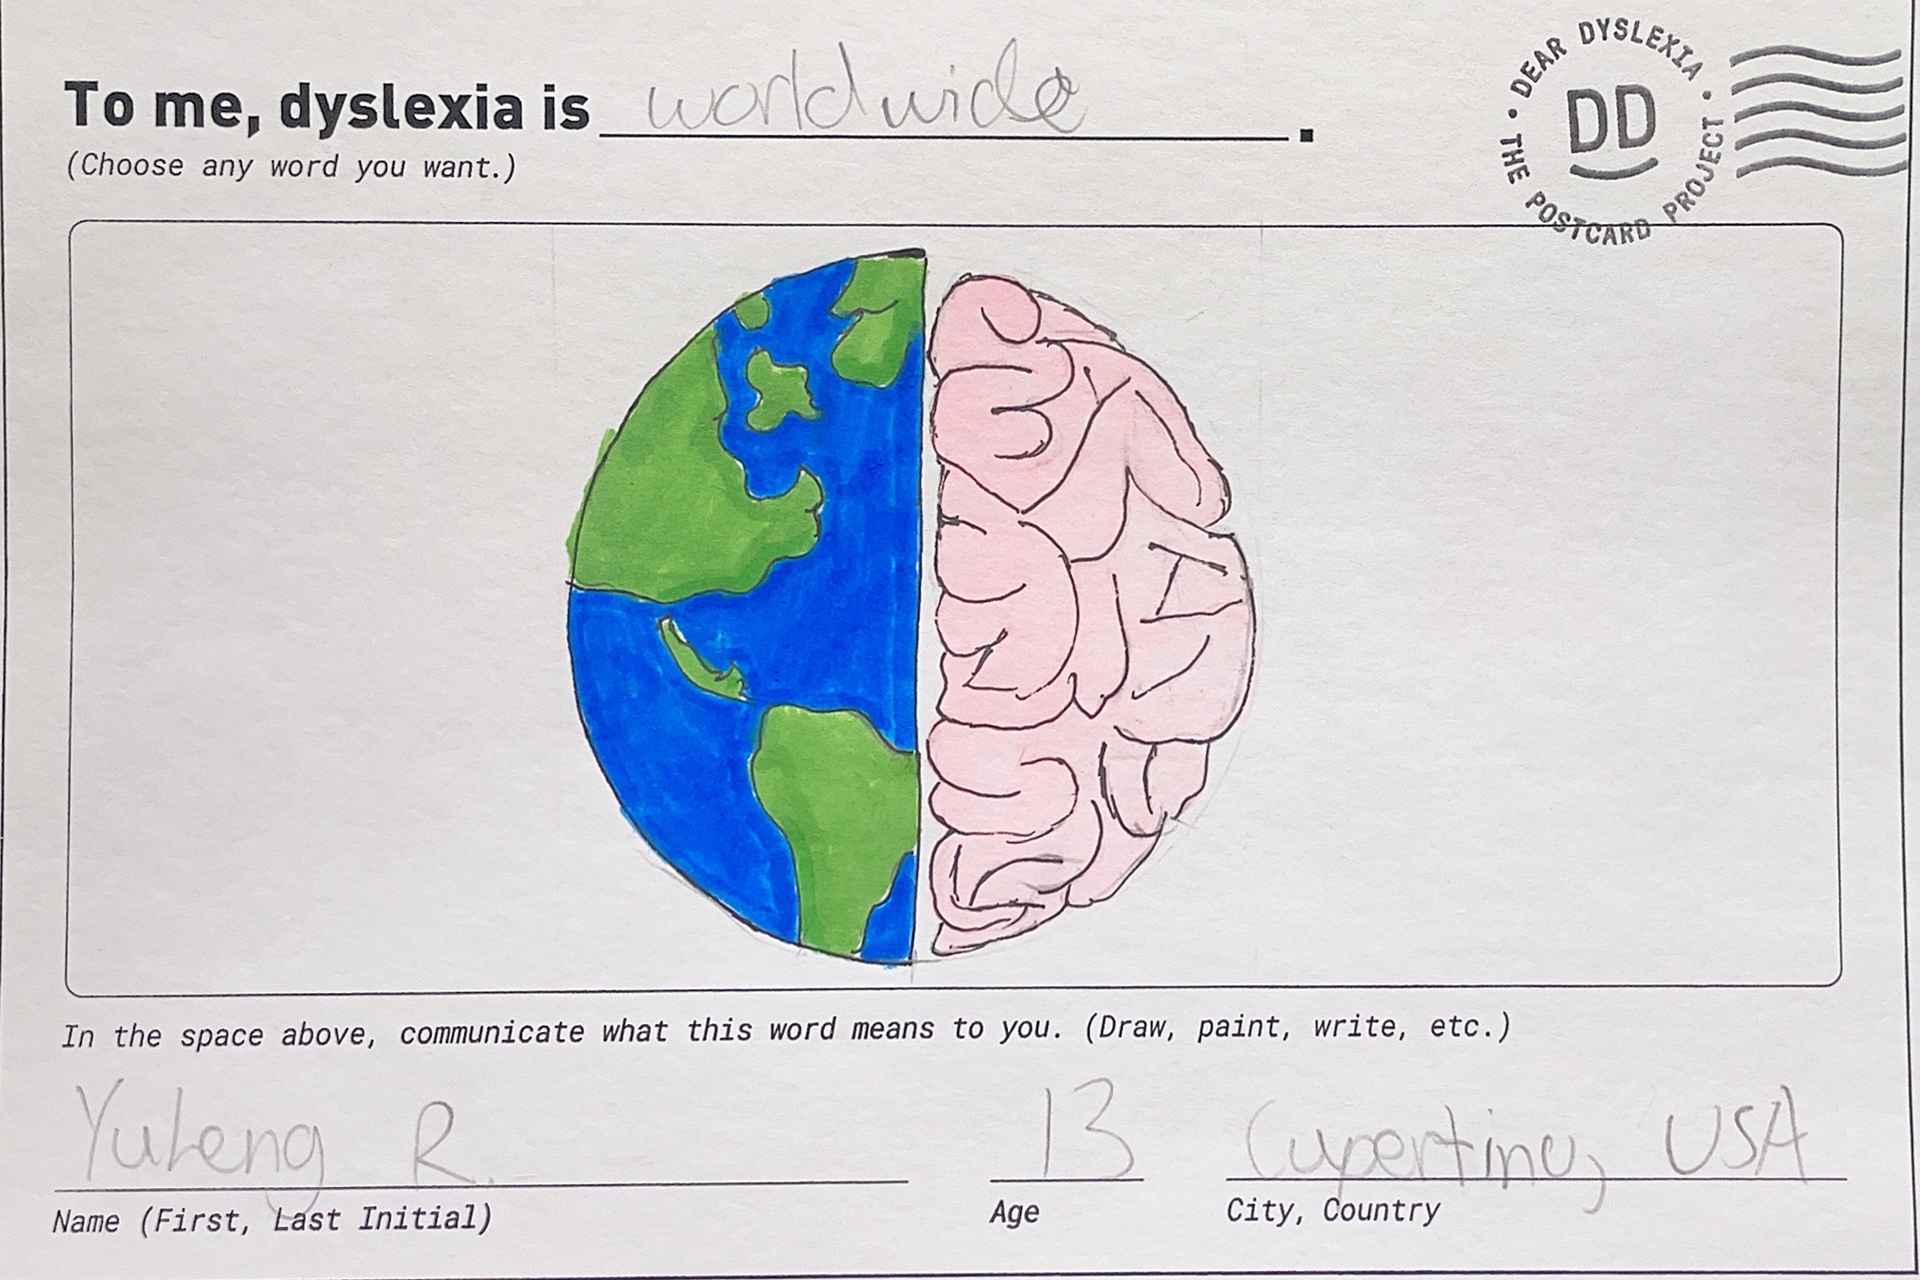 To me, dyslexia is worldwide.
(Choose any word you want.)
DEAR DYSLEXIA • THE POSTCARD PROJECT •
DD
In the space above, communicate what this word means to you. (Draw, paint, write, etc.)
R. 13 Cupertino, USA
Name (First, Last Initial) Age City, Country